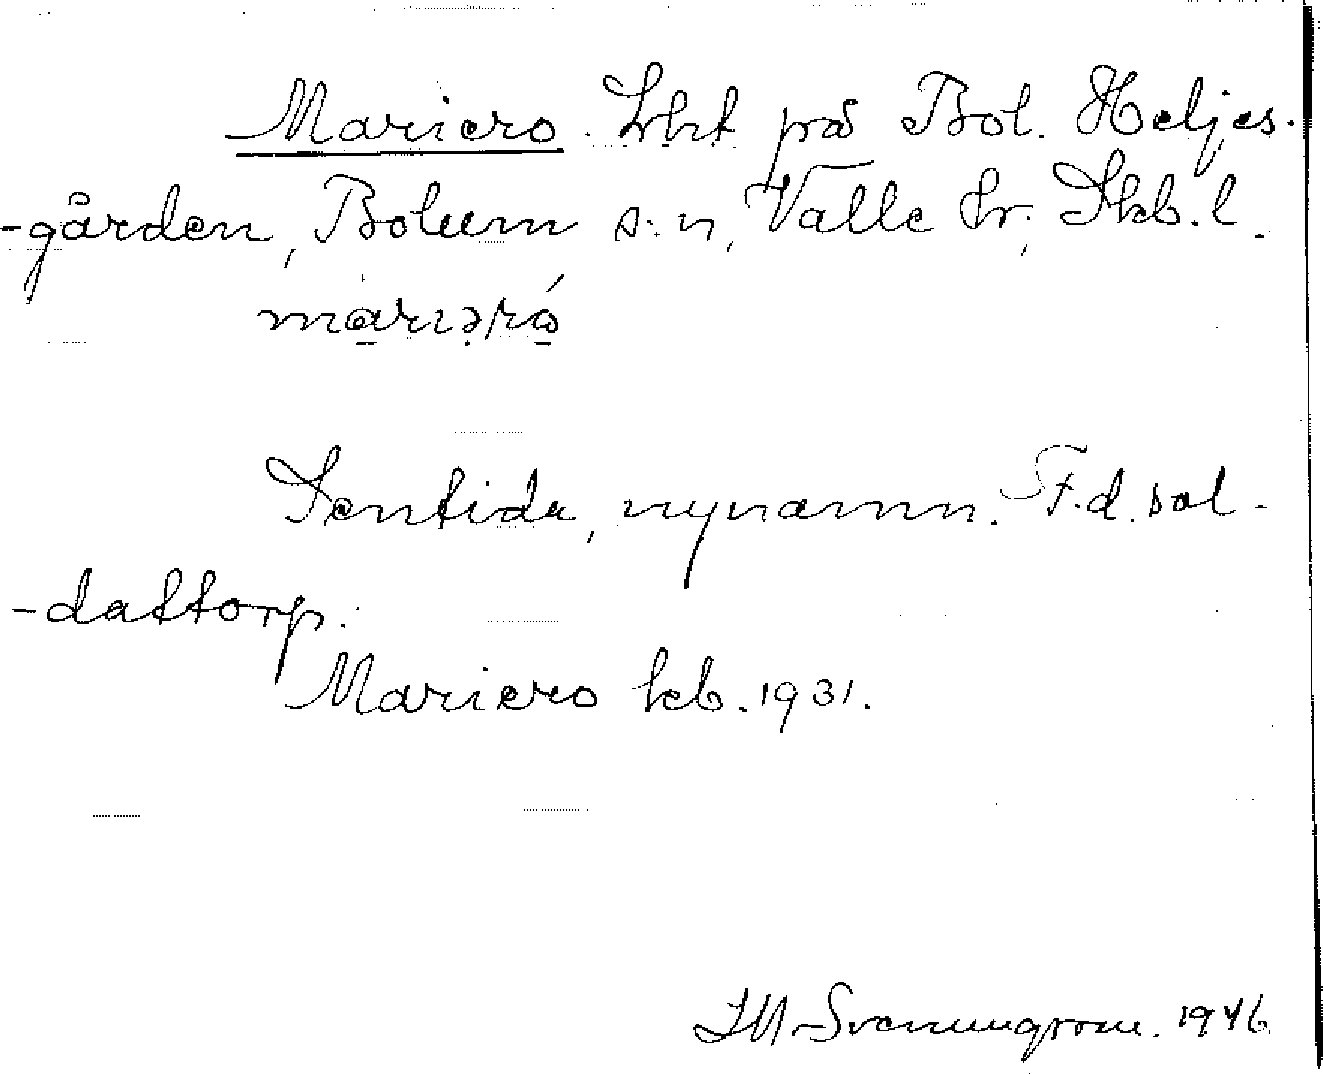 Mariero. Lht på Bol. Heljes-
-gården, Bolum s:n, Valle hr; Skb. l.
mariəró
Sentida, nynamn. F.d. sol-
-dattorp.
Mariero kb. 1931.
1946